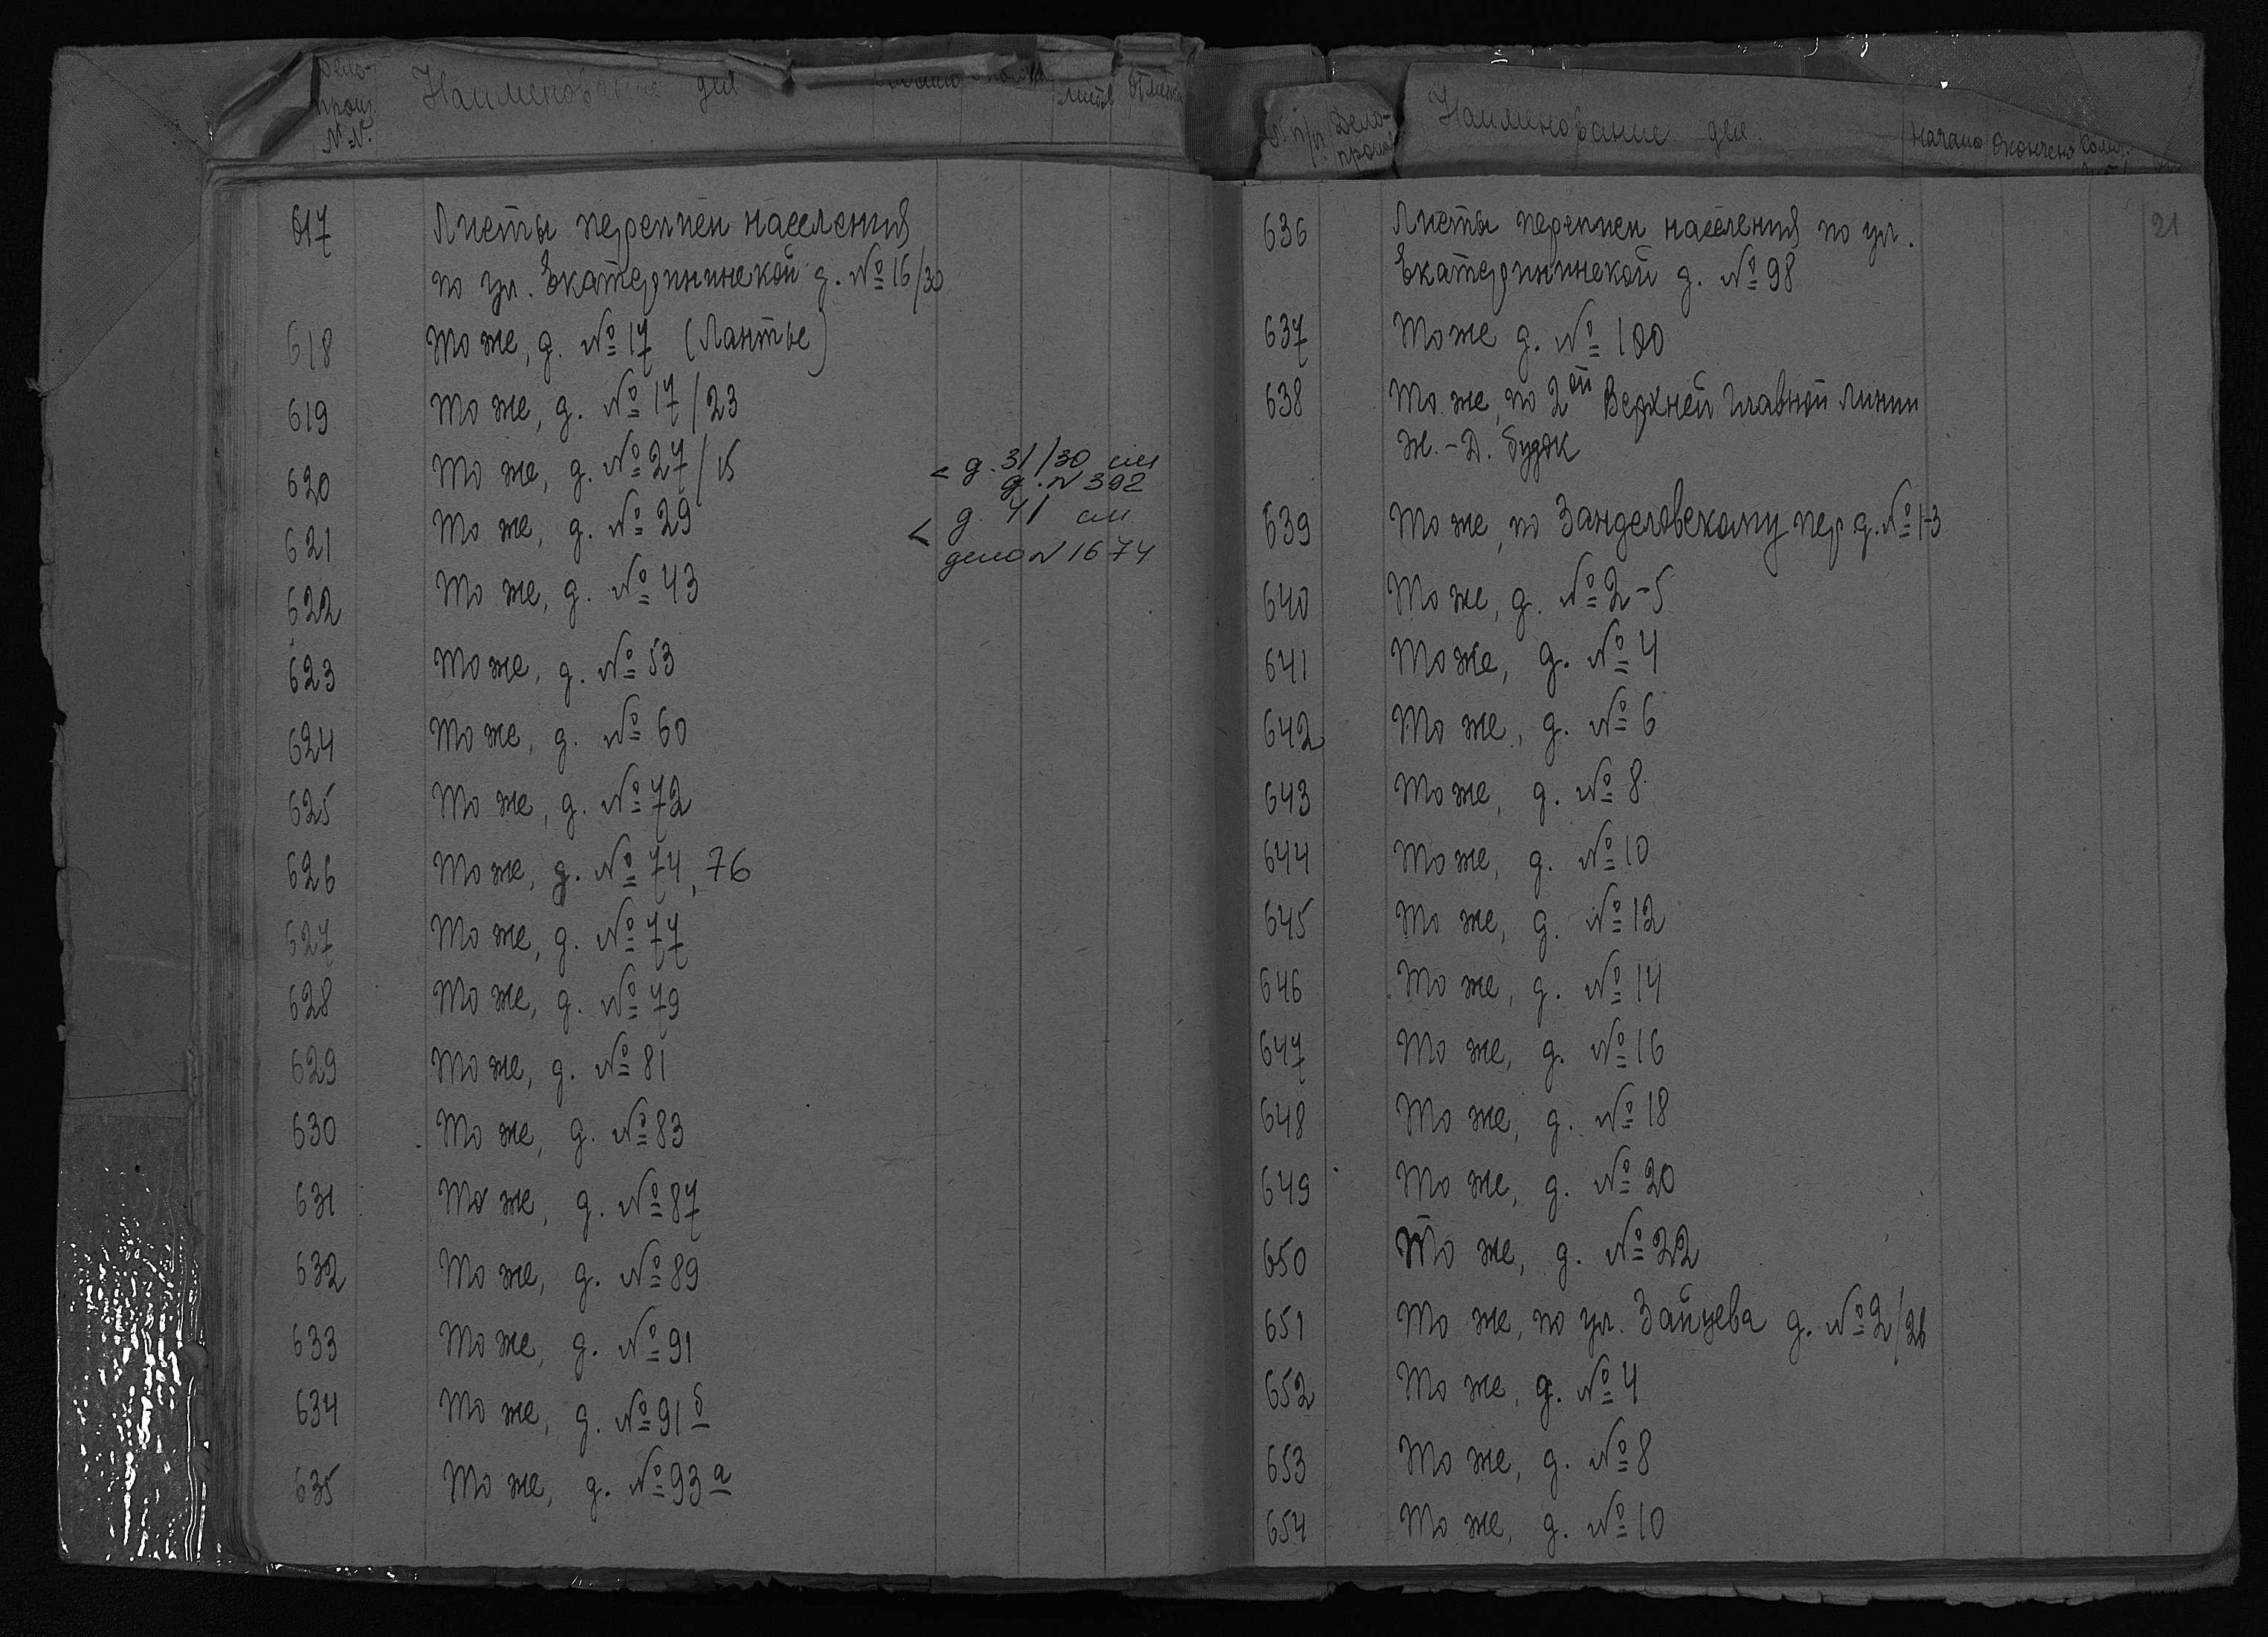 Дело-
произ.
№№.
Наименование дел
листов
№ п/п
Дело-
произ
Наименование дел.
Начато Окончено Колич.
617 Листы переписи населения
по ул. Екатерининской д. № 16/30
618 То же, д. № 17 (Лантье)
619 То же, д. № 17/23
620 То же, д. № 27/15
< д. 31/30 см
д. N 392
621 То же, д. № 29
< д. 41 см
дело N 1674
622 То же, д. № 43
623 То же, д. № 53
624 То же, д. № 60
625 То же, д. № 72
626 То же, д. № 74, 76
627 То же, д. № 77
628 То же, д. № 79
629 То же, д. № 81
630 То же, д. № 83
631 То же, д. № 87
632 То же, д. № 89
633 То же, д. № 91
634 То же, д. № 91 б
635 То же, д. № 93 а
21
636 Листы переписи населения по ул.
Екатерининской д. № 98
637 То же д. № 100
638 То же, по 2ой Верхней Главной линии
Ж.-Д. будок
639 То же, по Занделовскому пер д. № 1-3
640 То же, д. № 2-5
641 То же, д. № 4
642 То же, д. № 6
643 То же, д. № 8
644 То же, д. № 10
645 То же, д. № 12
646 То же, д. № 14
647 То же, д. № 16
648 То же, д. № 18
649 То же, д. № 20
650 То же, д. № 22
651 То же, по ул. Зайцева д. № 2/26
652 То же, д. № 4
653 То же, д. № 8
654 То же, д. № 10